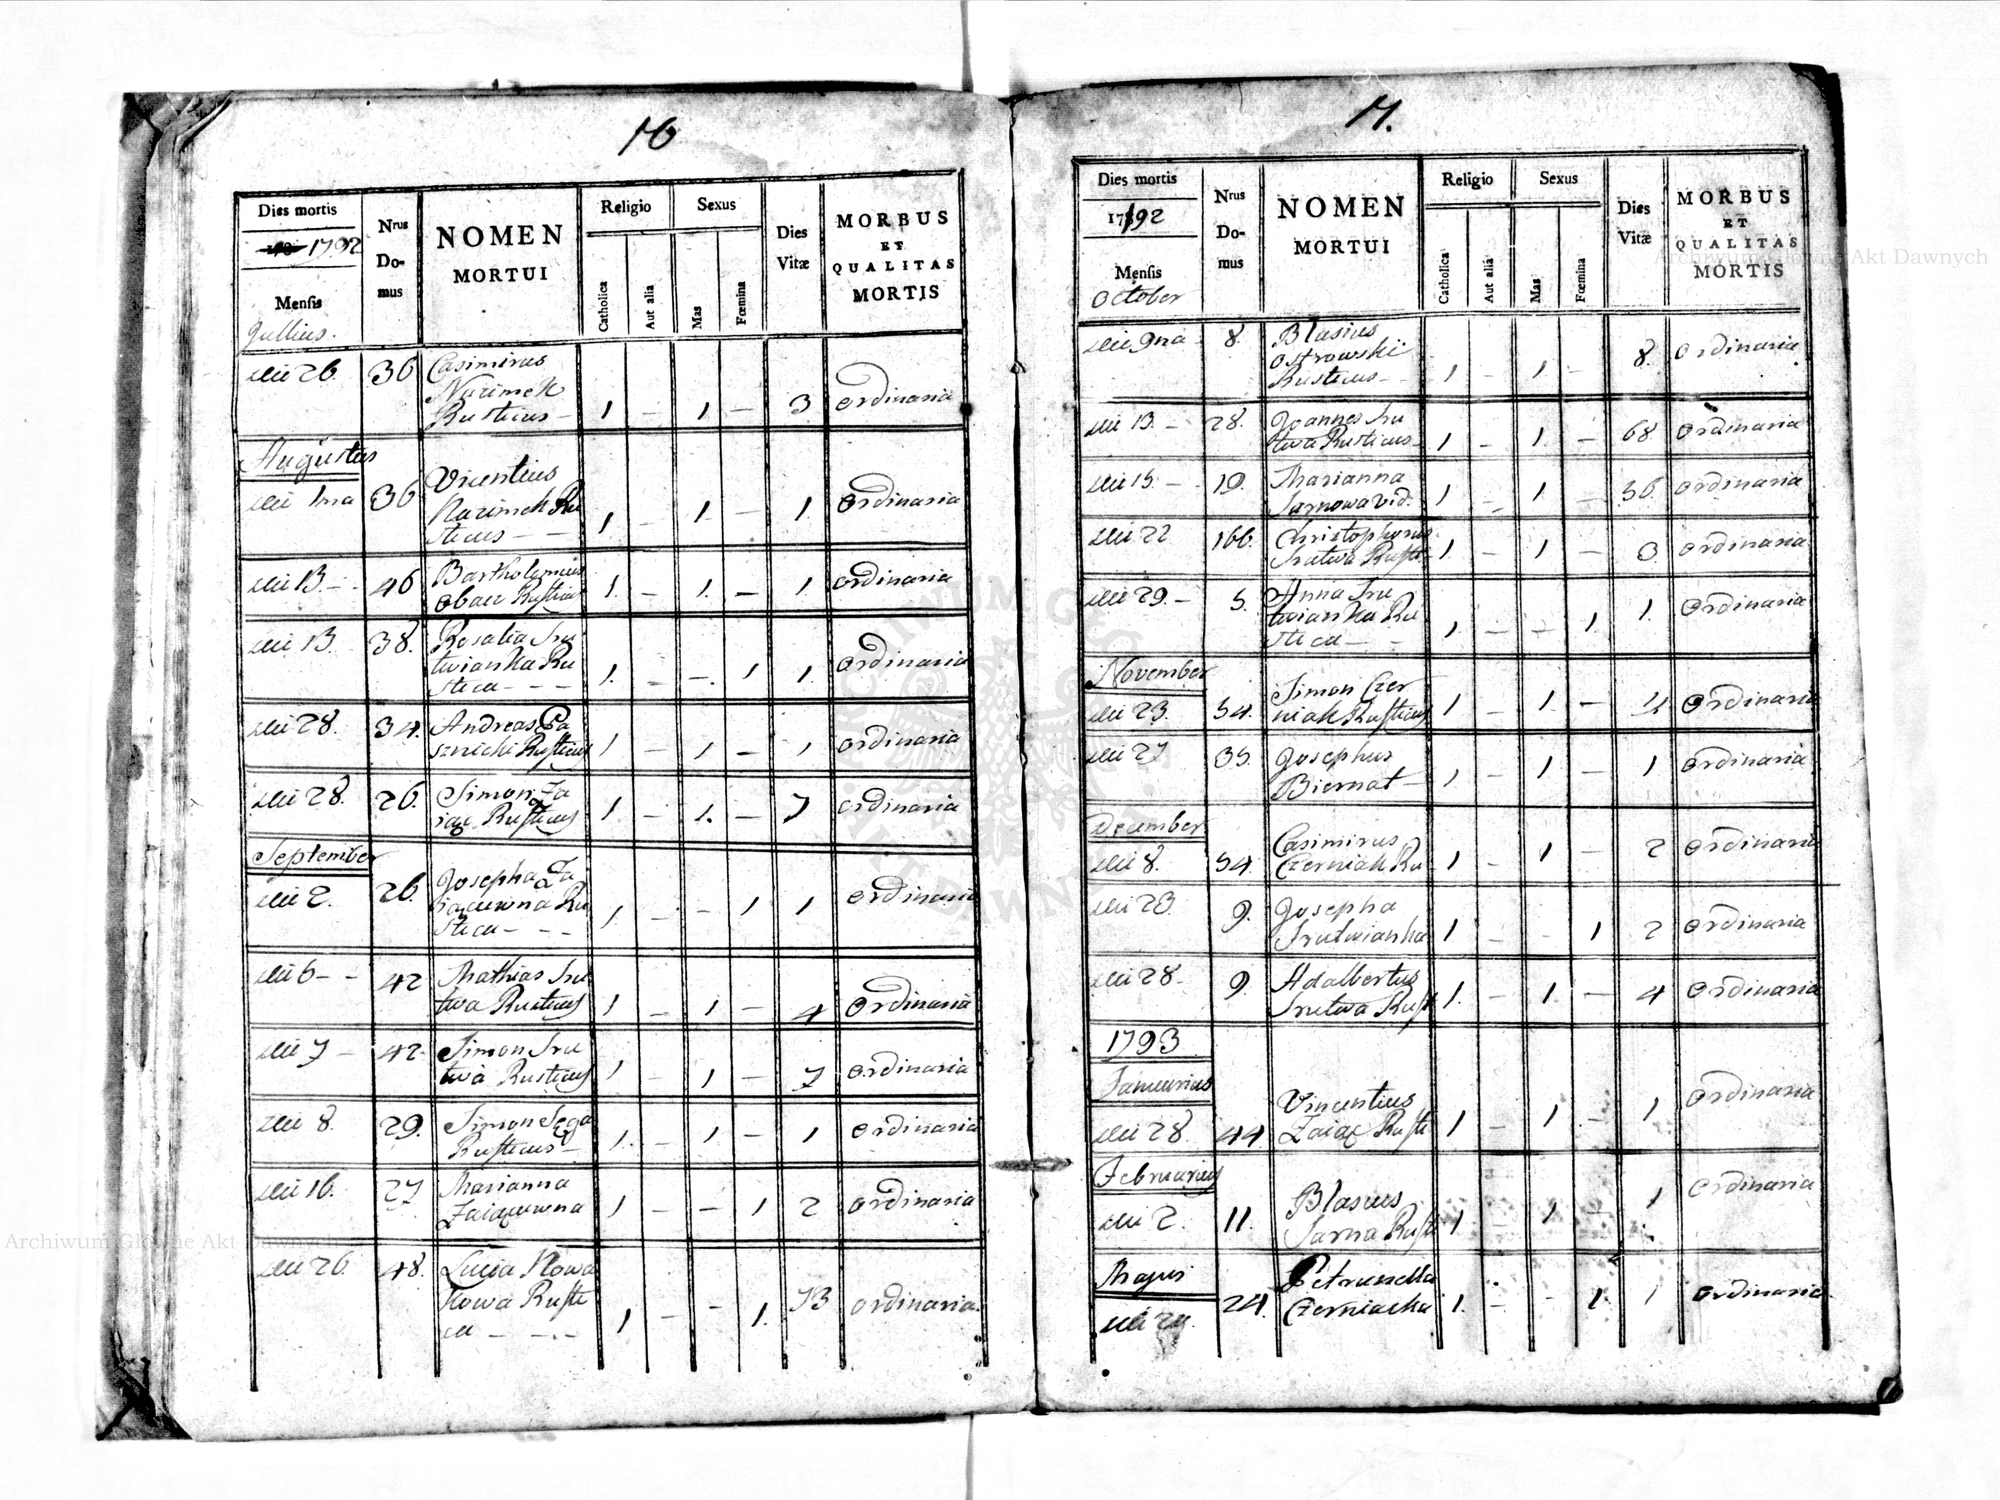 16
Dies mortis
1792
Mensis
Jullius.
Nrus Domus
NOMEN
MORTUI
Religio
Catholica
Aut alia
Sexus
Mas
Fœmina
Dies Vitæ
MORBUS
ET
QUALITAS
MORTIS
die 26. 36 Casimirus
Kazimek
Rusticus - 1 - 1 - 3 ordinaria
Augustus
die 1ma 36 Vincentius
Kazimek Ru
sticus - - 1 - 1 - 1. ordinaria
die 13. - 46 Bartholomeus
Rusticus 1. - 1. - 1 ordinaria
die 13. 38. Rosalia Sru
twianka Ru
stica - - - 1. - - 1 1. ordinaria
die 28. 34. Andreas
Rusticus 1 - 1 - 1 ordinaria
die 28. 26. Simon Za
iąc Rusticus 1 - 1. - 7 ordinaria
September
die 2. 26. Josepha Za
iącuwna Ru
stica - - - 1 - - 1 1 ordinaria
die 6 - - 42 Mathias Sru
twa Rusticus 1 - 1 - 4 ordinaria
die 7 - 42. Simon Sru
twa Rusticus 1 - 1 - 7 ordinaria
die 8. 29. Simon
Rusticus - 1. - 1 - 1 ordinaria
die 16. 27 Marianna
Zaiącuwna 1 - - 1 2 ordinaria
die 26. 48. Lucia Nowa
kowa Rusti
ca - - - 1 - - 1. 73 ordinaria.
17.
Dies mortis
1792
Mensis
October
Nrus Domus
NOMEN
MORTUI
Religio
Catholica
Aut alia
Sexus
Mas
Fœmina
Dies Vitæ
MORBUS
ET
QUALITAS
MORTIS
die 9na 8. Blasius
Ostrowski
Rusticus - 1 - 1 - 8. ordinaria
die 13. - 28. Joannes Sru
twa Rusticus - 1 - 1. - 68 ordinaria
die 15. - 19. Marianna
Sarnowa vid. 1 - 1 - 36. ordinaria
die 22 166. Christophorus
Srutwa Rusti- 1 - 1 - 3 ordinaria
die 29. - 5. Anna Sru
twianka Ru
stica - 1. - - 1 1. ordinaria
November
die 23. 54. Simon Czer
niak Rusticus 1 - 1. - 4 ordinaria
die 27 35. Josephus
Biernat - 1 - 1 - 1 ordinaria
December
die 8. 54. Casimirus
Czerniak Ru 1 - 1 - 2 ordinaria
die 23. 9. Josepha
Srutwianka 1 - - 1 2 ordinaria
die 28. 9. Adalbertus
Srutwa Rusti 1. - 1. - 4 ordinaria
1793
Januarius
die 28 44 Vincentius
Zaiąc Rusti 1 - 1 - 1 ordinaria
Februarius
die 2. 11. Blasius
Sarna Rusti 1 - 1 - 1 ordinaria
Majus
die 24. 24. Petronella
Czerniacka 1. - - 1. 1 ordinaria
Archiwum Główne Akt Dawnych
Archiwum Główne Akt Dawnych